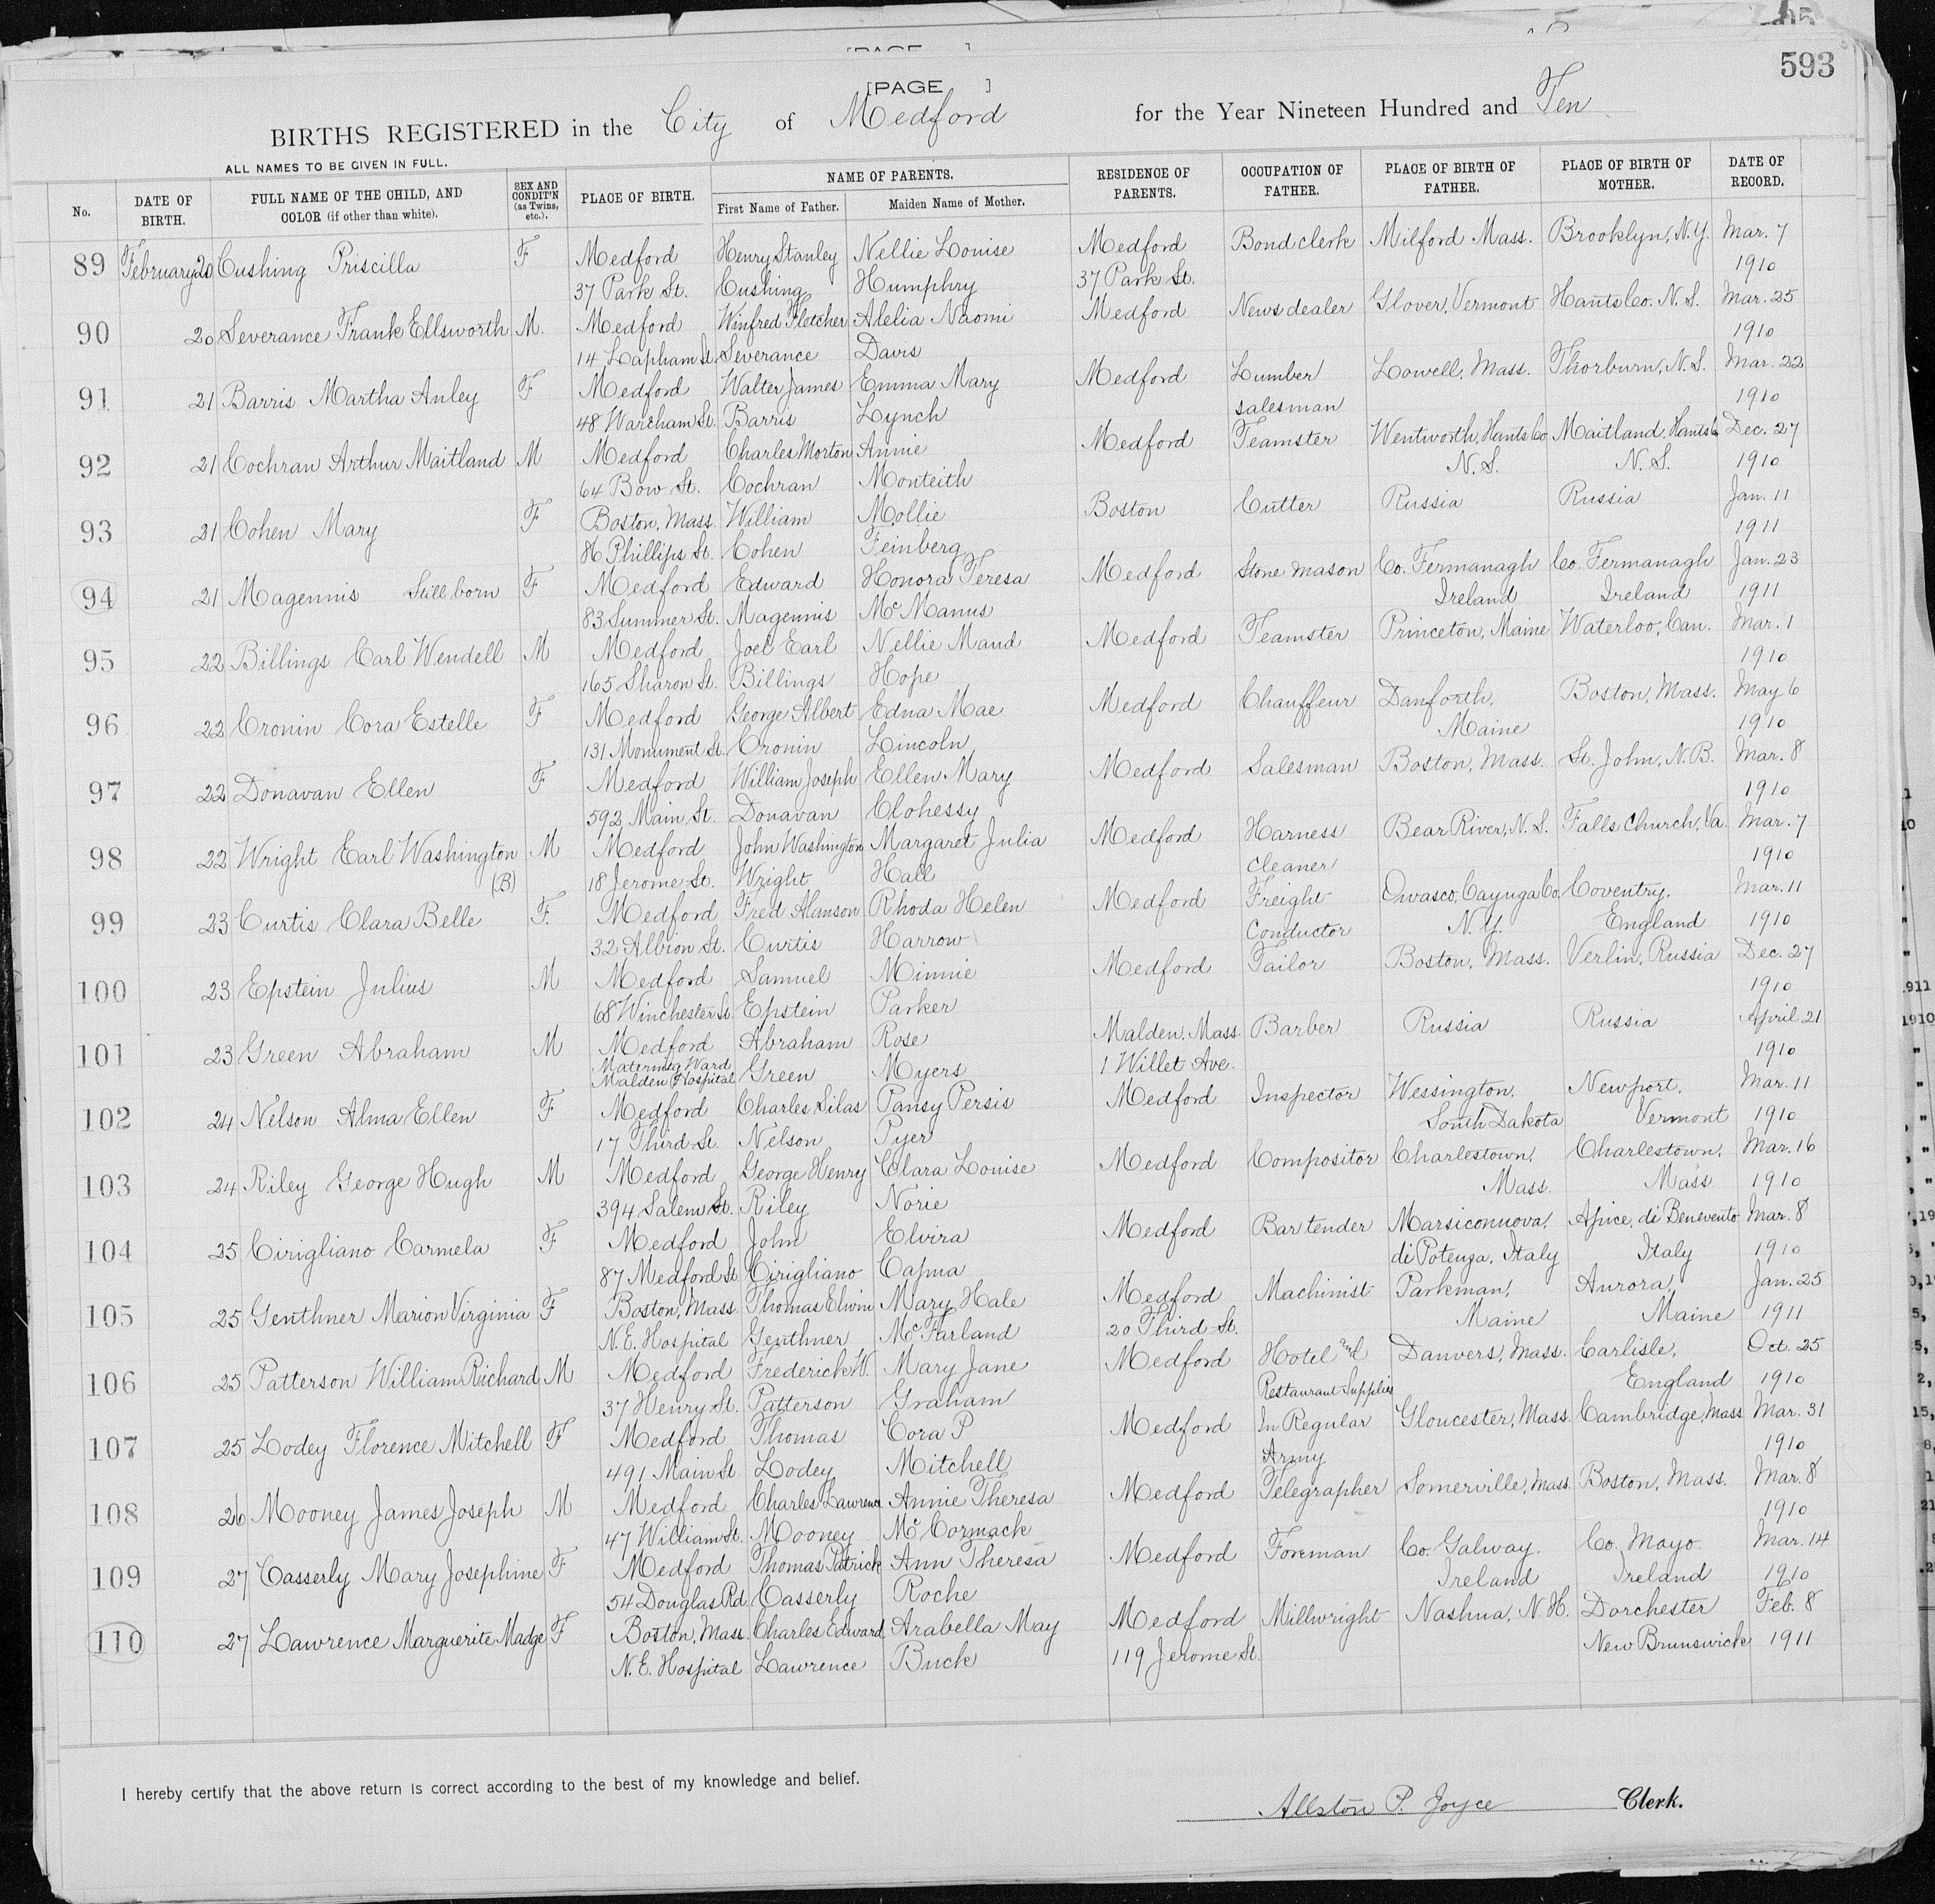 593
[PAGE ]
BIRTHS REGISTERED in the City of Medford for the Year Nineteen Hundred and Ten
ALL NAMES TO BE GIVEN IN FULL.
No. DATE OF BIRTH. FULL NAME OF THE CHILD, AND COLOR (if other than white). SEX AND CONDIT'N (as Twins, etc.). PLACE OF BIRTH. NAME OF PARENTS. First Name of Father. Maiden Name of Mother. RESIDENCE OF PARENTS. OCCUPATION OF FATHER. PLACE OF BIRTH OF FATHER. PLACE OF BIRTH OF MOTHER. DATE OF RECORD.
89 February 20 Cushing Priscilla F Medford Henry Stanley Nellie Louise Medford Bond clerk Milford Mass. Brooklyn, N.Y. Mar. 7
37 Park St. Cushing Humphry 37 Park St. 1910
90 20 Severance Frank Ellsworth M. Medford Winfred Fletcher Alelia Naomi Medford News dealer Glover, Vermont Hants Co. N.S. Mar. 25
14 Lapham St. Severance Davis 1910
91 21 Barris Martha Anley F Medford Walter James Emma Mary Medford Lumber Lowell, Mass. Thorburn, N.S. Mar. 22
48 Wareham St. Barris Lynch salesman 1910
92 21 Cochran Arthur Maitland M Medford Charles Morton Annie Medford Teamster Wentworth, Hants Co Maitland, Hants Co Dec. 27
64 Bow St. Cochran Monteith N.S. N.S. 1910
93 21 Cohen Mary F Boston, Mass. William Mollie Boston Cutter Russia Russia Jan. 11
86 Phillips St. Cohen Feinberg 1911
94 21 Magennis Still born F Medford Edward Honora Teresa Medford Stone mason Co. Fermanagh Co. Fermanagh Jan. 23
83 Summer St. Magennis McManus Ireland Ireland 1911
95 22 Billings Carl Wendell M Medford Joel Earl Nellie Maud Medford Teamster Princeton, Maine Waterloo, Can. Mar. 1
165 Sharon St. Billings Hope 1910
96 22 Cronin Cora Estelle F Medford George Albert Edna Mae Medford Chauffeur Danforth, Boston, Mass. May 6
131 Monument St. Cronin Lincoln Maine 1910
97 22 Donavan Ellen F Medford William Joseph Ellen Mary Medford Salesman Boston, Mass. St. John, N.B. Mar. 8
592 Main St. Donavan Clohessy 1910
98 22 Wright Earl Washington M Medford John Washington Margaret Julia Medford Harness Bear River, N.S. Falls Church, Va. Mar. 7
(B) 18 Jerome St. Wright Hall cleaner 1910
99 23 Curtis Clara Belle F. Medford Fred Alanson Rhoda Helen Medford Freight Owasco, Cayuga Co. Coventry, Mar. 11
32 Albion St. Curtis Harrow Conductor N.Y. England 1910
100 23 Epstein Julius M Medford Samuel Minnie Medford Tailor Boston, Mass. Verlin, Russia Dec. 27
68 Winchester St. Epstein Parker 1910
101 23 Green Abraham M Medford Abraham Rose Malden, Mass. Barber Russia Russia April 21
Maternity Ward Malden Hospital Green Myers 1 Willet Ave. 1910
102 24 Nelson Alma Ellen F Medford Charles Silas Pansy Persis Medford Inspector Wessington, Newport, Mar. 11
17 Third St. Nelson Pyer South Dakota Vermont 1910
103 24 Riley George Hugh M Medford George Henry Clara Louise Medford Compositor Charlestown, Charlestown, Mar. 16
394 Salem St. Riley Norie Mass. Mass 1910
104 25 Cirigliano Carmela F Medford John Elvira Medford Bartender Marsiconuova, Apice, di Benevento Mar. 8
87 Medford St. Cirigliano Capua di Potenza, Italy Italy 1910
105 25 Genthner Marion Virginia F Boston, Mass. Thomas Elwin Mary Hale Medford Machinist Parkman, Aurora, Jan. 25
N.E. Hospital Genthner McFarland 20 Third St. Maine Maine 1911
106 25 Patterson William Richard M Medford Frederick W. Mary Jane Medford Hotel and Danvers, Mass. Carlisle, Oct. 25
37 Henry St. Patterson Graham Restaurant Supplies England 1910
107 25 Lodey Florence Mitchell F Medford Thomas Cora P Medford In Regular Gloucester, Mass. Cambridge, Mass Mar. 31
491 Main St. Lodey Mitchell Army 1910
108 26 Mooney James Joseph M Medford Charles Lawrence Annie Theresa Medford Telegrapher Somerville, Mass. Boston, Mass. Mar. 8
47 William St. Mooney McCormack 1910
109 27 Casserly Mary Josephine F Medford Thomas Patrick Ann Theresa Medford Foreman Co. Galway. Co. Mayo. Mar. 14
54 Douglas Rd Casserly Roche Ireland Ireland 1910
110 27 Lawrence Marguerite Madge F Boston, Mass. Charles Edward Arabella May Medford Millwright Nashua, N.H. Dorchester Feb. 8
N.E. Hospital Lawrence Buck 119 Jerome St. New Brunswick 1911
I hereby certify that the above return is correct according to the best of my knowledge and belief.
Allston P. Joyce Clerk.